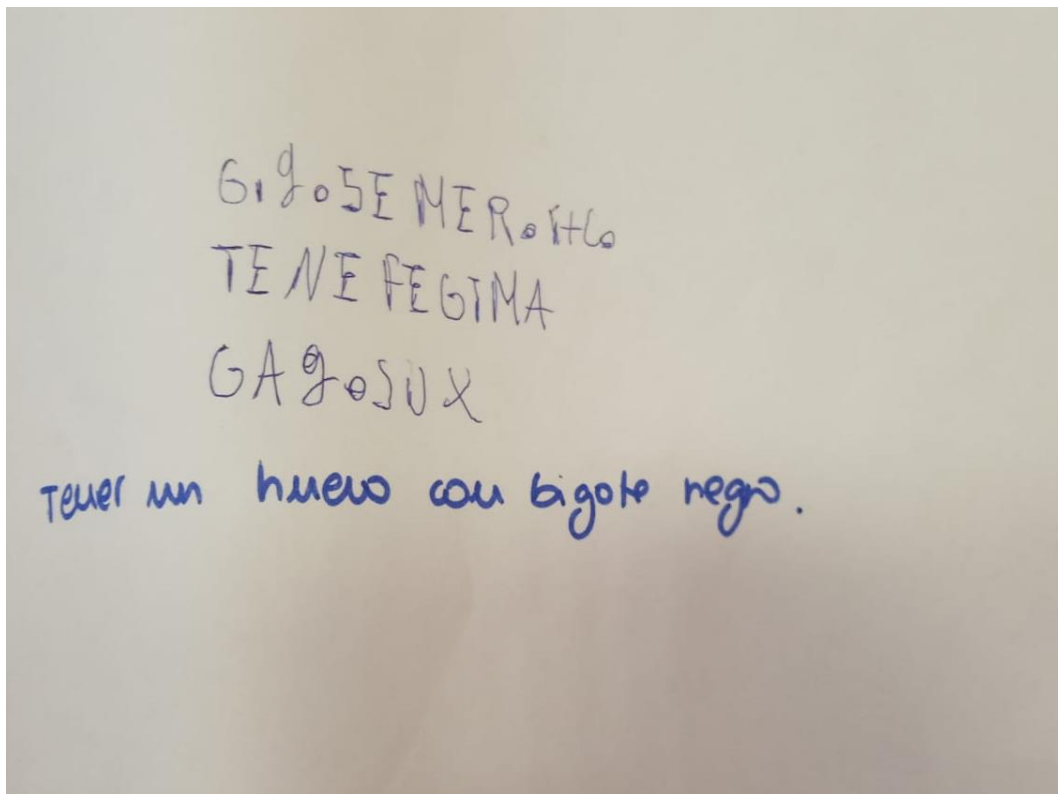 GigoSE MERoitGo
TENE FEGIMA
GAgoSUX
Tener un huevo con bigote negro.